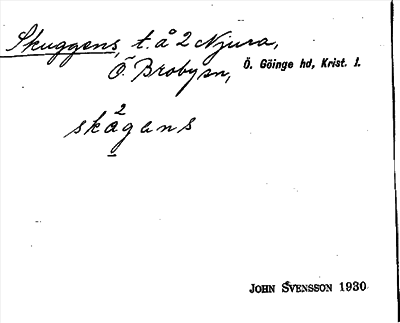 Skuggens, t. å 2 Njura,
Ö. Brobysn, Ö. Göinge hd, Krist. l.
2
skågens
JOHN SVENSSON 1930